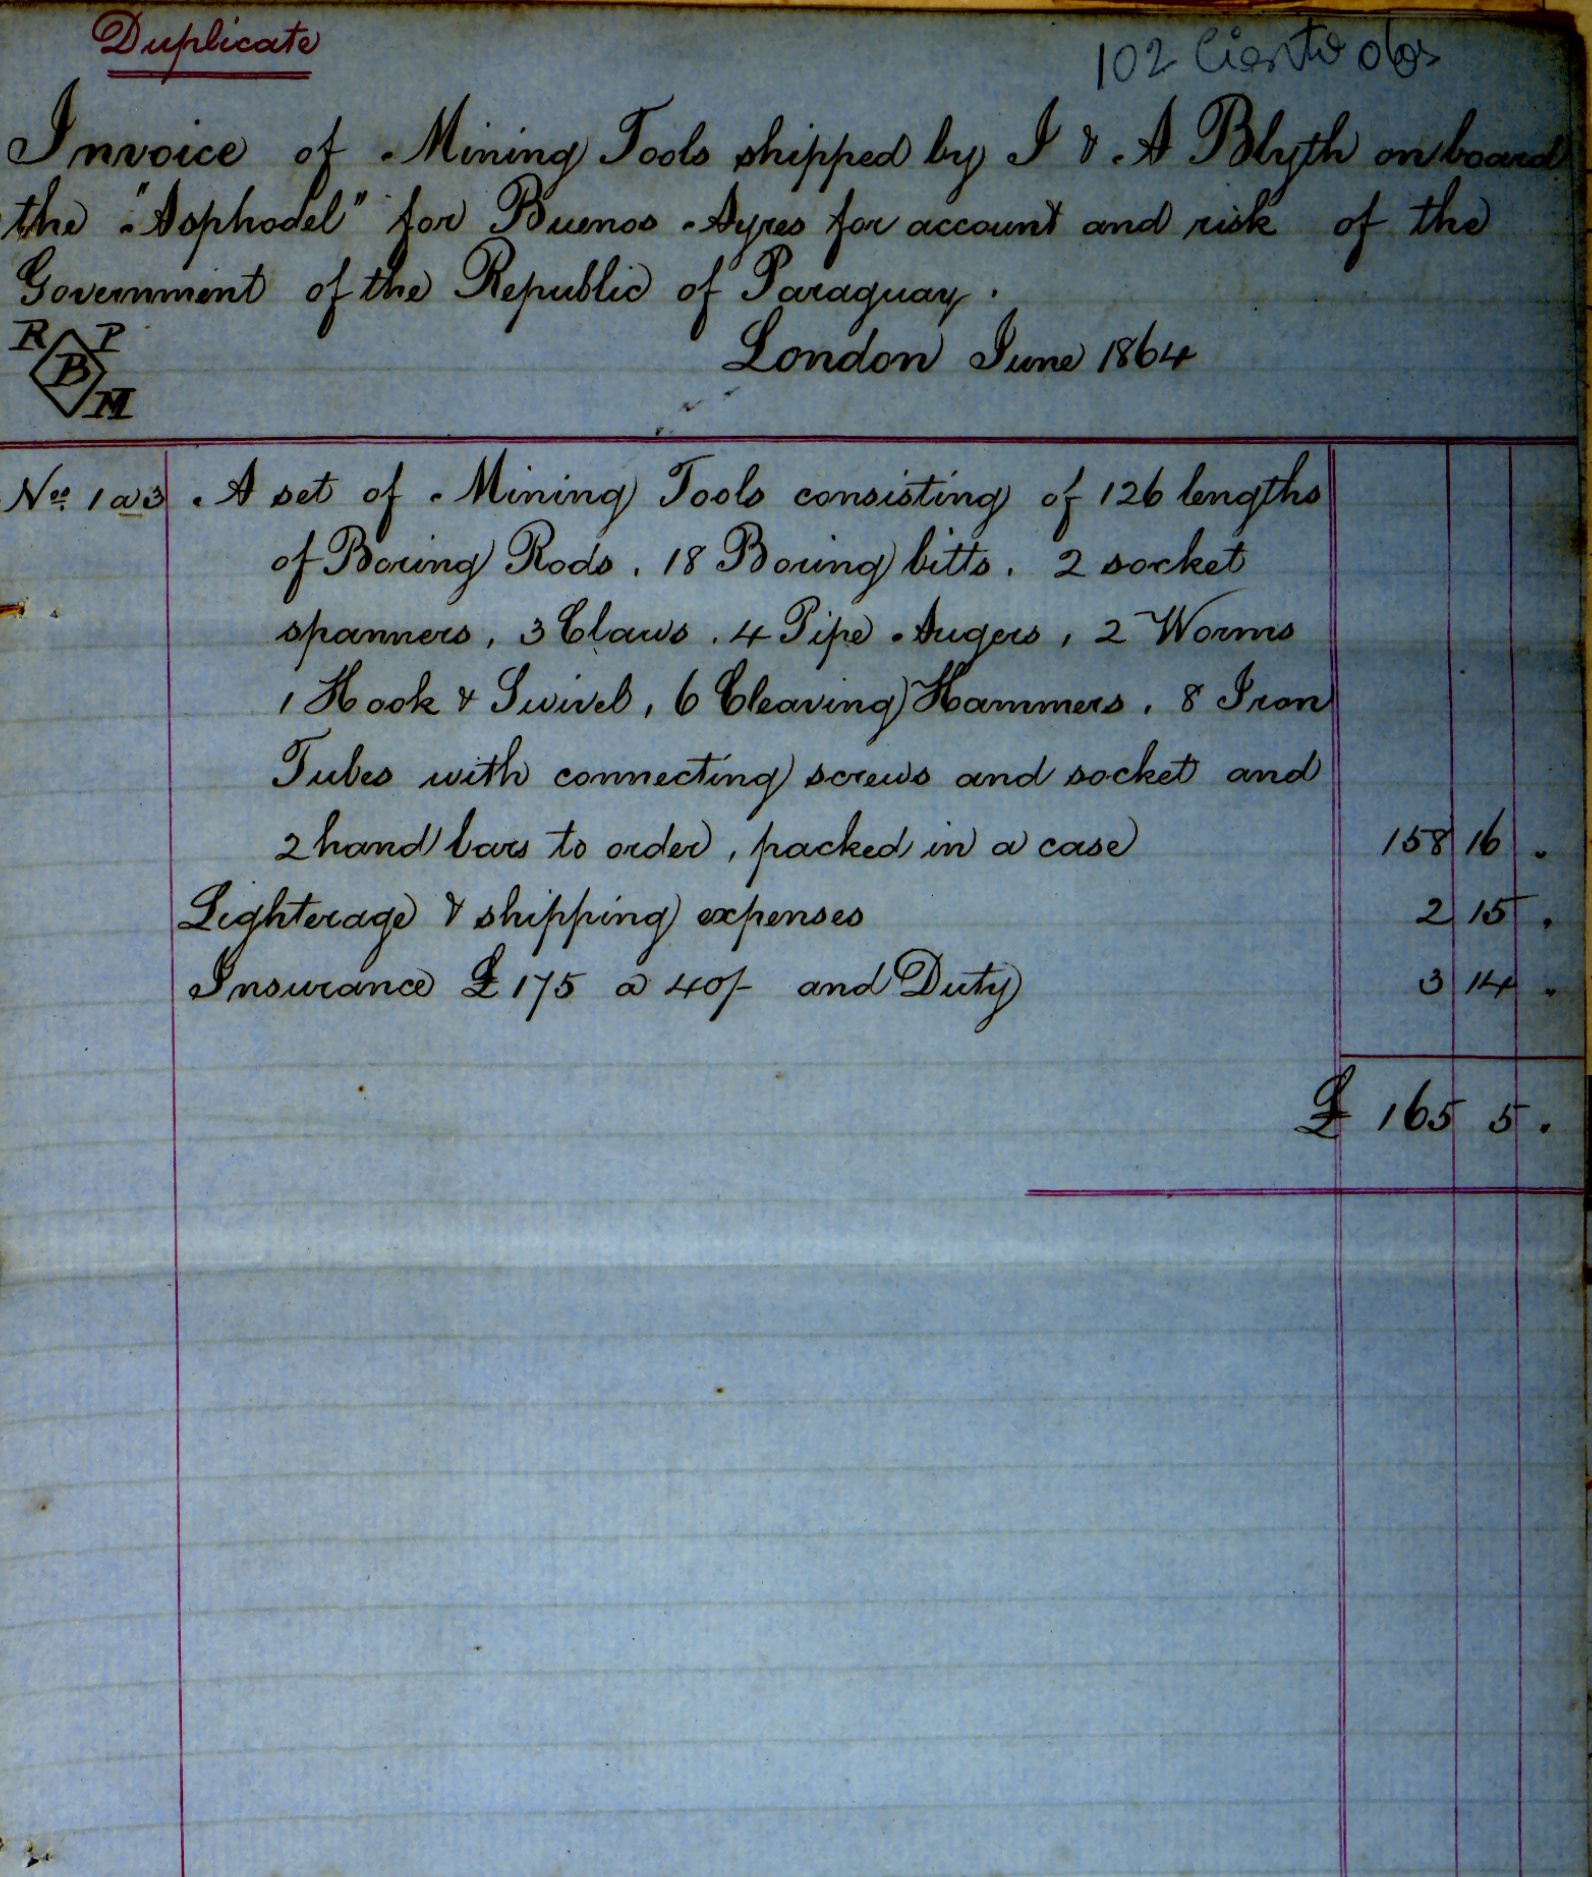 Duplicate
102 Ciento dos
Invoice of Mining Tools shipped by J & A Blyth on board
the "Asphodel" for Buenos Ayres for account and risk of the
Government of the Republic of Paraguay.
R P
B
M
London June 1864
Nos. 1 a 3 A set of Mining Tools consisting of 126 lengths
of Boring Rods, 18 Boring bitts, 2 socket
spanners, 3 Claws, 4 Pipe Augers, 2 Worms
1 Hook & Swivel, 6 Cleaving Hammers, 8 Iron
Tubes with connecting screws and socket and
2 hand bars to order, packed in a case 158 16 .
Lighterage & shipping expenses 2 15 .
Insurance £175 a 40/- and Duty 3 14 "
£ 165 5 .